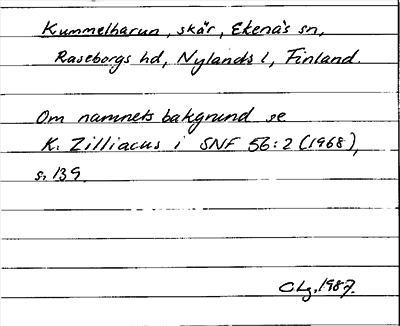 Kummelharun, skär, Ekenäs sn,
Raseborgs hd, Nylands l, Finland.
Om namnets bakgrund se
K. Zilliacus i SNF 56:2 (1968),
s. 139.
CLg. 1987.